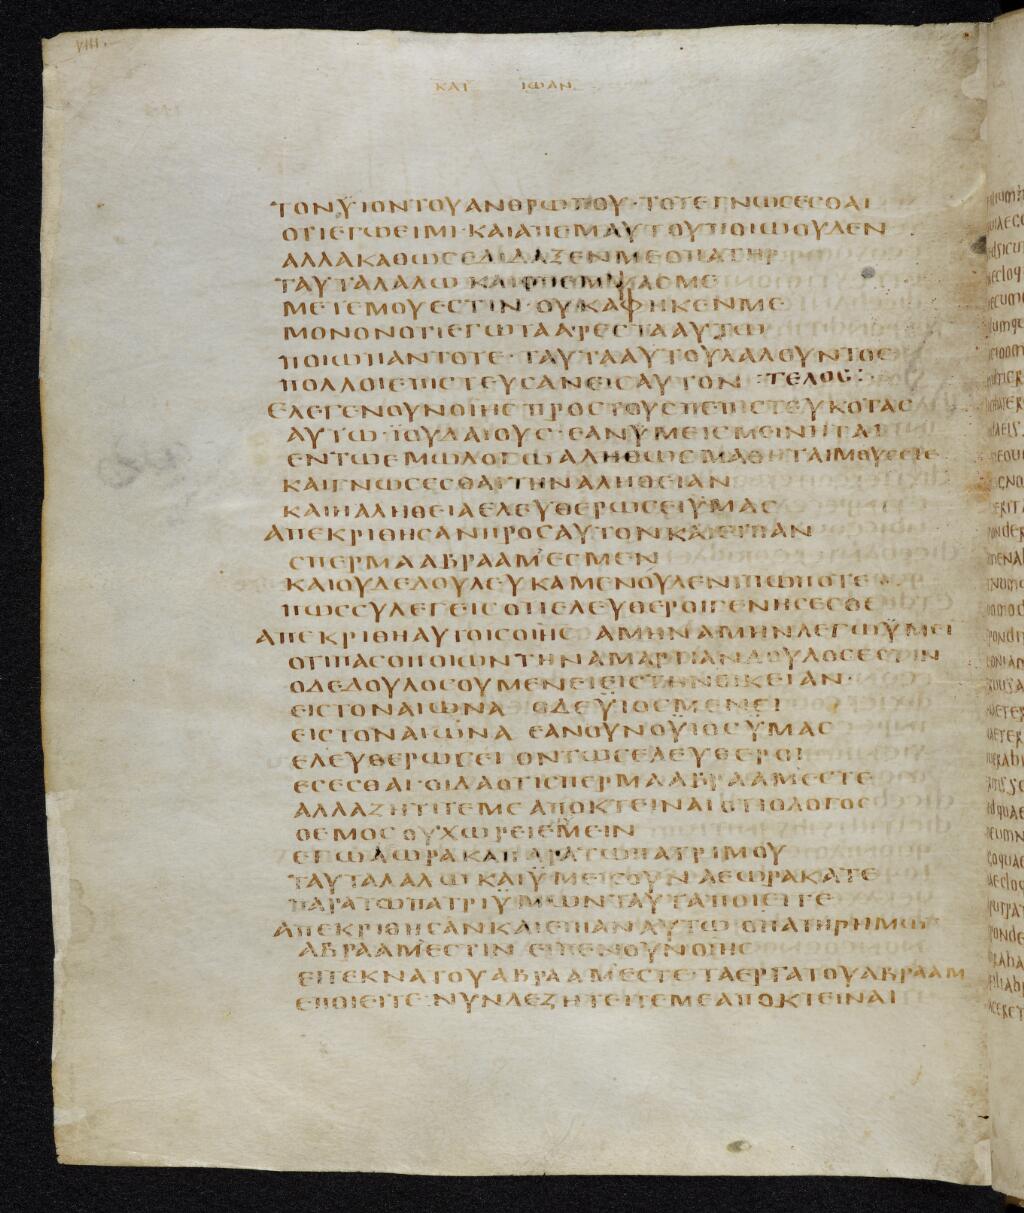 VIII.
ΚΑΤ ΙΩΑΝ
ΤΟΝΫΙΟΝΤΟΥΑΝΘΡΩΠΟΥ·ΤΟΤΕΓΝΩСΕСΘΑΙ
ΟΤΙΕΓΩΕΙΜΙ·ΚΑΙΑΠΕΜΑΥΤΟΥΠΟΙΩΟΥΔΕΝ
ΑΛΛΑΚΑΘΩСΕΔΙΔΑΞΕΝΜΕΟΠΑΤΗΡ
ΤΑΥΤΑΛΑΛΩ ΚΑΙΟΠΕΜΨΑСΜΕ
ΜΕΤΕΜΟΥΕСΤΙΝ·ΟΥΚΑΦΗΚΕΝΜΕ
ΜΟΝΟΝΟΤΙΕΓΩΤΑΑΡΕСΤΑΑΥΤΩ
ΠΟΙΩΠΑΝΤΟΤΕ·ΤΑΥΤΑΑΥΤΟΥΛΑΛΟΥΝΤΟС
ΠΟΛΛΟΙΕΠΙСΤΕΥСΑΝΕΙСΑΥΤΟΝ ΤΕΛΟС
ΕΛΕΓΕΝΟΥΝΟΙΗСΠΡΟСΤΟΥСΠΕΠΙСΤΕΥΚΟΤΑС
ΑΥΤΩ·ΪΟΥΔΑΙΟΥС·ΕΑΝΫΜΕΙСΜΕΙΝΗΤΑΙ
ΕΝΤΩΕΜΩΛΟΓΩΑΛΗΘΩСΜΑΘΗΤΑΙΜΟΥΕСΤΕ
ΚΑΙΓΝΩСΕСΘΑΙΤΗΝΑΛΗΘΕΙΑΝ
ΚΑΙΗΑΛΗΘΕΙΑΕΛΕΥΘΕΡΩСΕΙΫΜΑС
ΑΠΕΚΡΙΘΗСΑΝΠΡΟСΑΥΤΟΝΚΑΙΕΙΠΑΝ
СΠΕΡΜΑΑΒΡΑΑΜΕСΜΕΝ
ΚΑΙΟΥΔΕΔΟΥΛΕΥΚΑΜΕΝΟΥΔΕΝΙΠΩΠΟΤΕ
ΠΩССΥΛΕΓΕΙСΟΤΙΕΛΕΥΘΕΡΟΙΓΕΝΗСΕСΘΕ
ΑΠΕΚΡΙΘΗΑΥΤΟΙСΟΙΗС ΑΜΗΝΑΜΗΝΛΕΓΩΫΜΕΙ
ΟΤΙΠΑСΟΠΟΙΩΝΤΗΝΑΜΑΡΤΙΑΝΔΟΥΛΟСΕСΤΙΝ
ΟΔΕΔΟΥΛΟСΟΥΜΕΝΕΙΕΙСΤΗΝΟΙΚΕΙΑΝ·
ΕΙСΤΟΝΑΙΩΝΑ ΟΔΕΫΙΟСΜΕΝΕΙ
ΕΙСΤΟΝΑΙΩΝΑ ΕΑΝΟΥΝΟΥΙΟСΫΜΑС
ΕΛΕΥΘΕΡΩСΕΙ ΟΝΤΩСΕΛΕΥΘΕΡΟΙ
ΕСΕСΘΑΙ·ΟΙΔΑΟΤΙСΠΕΡΜΑΑΒΡΑΑΜΕСΤΕ
ΑΛΛΑΖΗΤΙΤΕΜΕΑΠΟΚΤΕΙΝΑΙΟΤΙΟΛΟΓΟС
ΟΕΜΟСΟΥΧΩΡΕΙΕΜΕΙΝ
ΕΓΩΑΩΡΑΚΑΠΑΡΑΤΩΠΑΤΡΙΜΟΥ
ΤΑΥΤΑΛΑΛΩ ΚΑΙΫΜΕΙСΟΥΝΑΕΩΡΑΚΑΤΕ
ΠΑΡΑΤΩΠΑΤΡΙΫΜΩΝΤΑΥΤΑΠΟΙΕΙΤΕ
ΑΠΕΚΡΙΘΗСΑΝΚΑΙΕΙΠΑΝΑΥΤΩ ΟΠΑΤΗΡΗΜΩΝ
ΑΒΡΑΑΜΕСΤΙΝ ΕΙΠΕΝΟΥΝΟΙΗС
ΕΙΤΕΚΝΑΤΟΥΑΒΡΑΑΜΕСΤΕ·ΤΑΕΡΓΑΤΟΥΑΒΡΑΑΜ
ΕΠΟΙΕΙΤΕ·ΝΥΝΔΕΖΗΤΕΙΤΕΜΕΑΠΟΚΤΕΙΝΑΙ